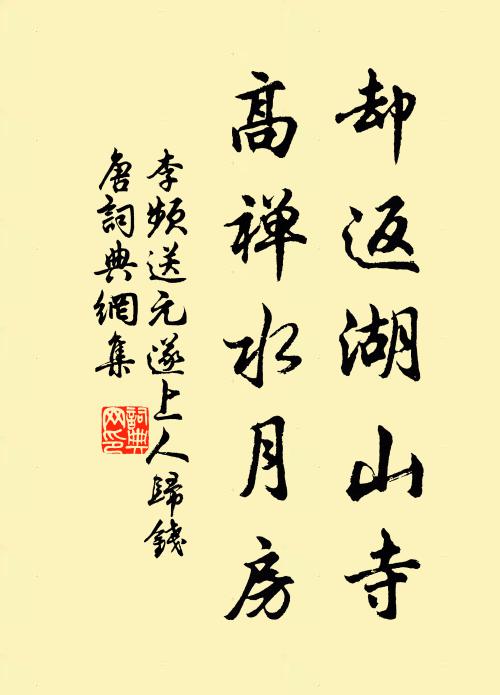 却返湖山寺
高禅水月房
李频送元遂上人歸錢
唐詞典網集
詞典
网印